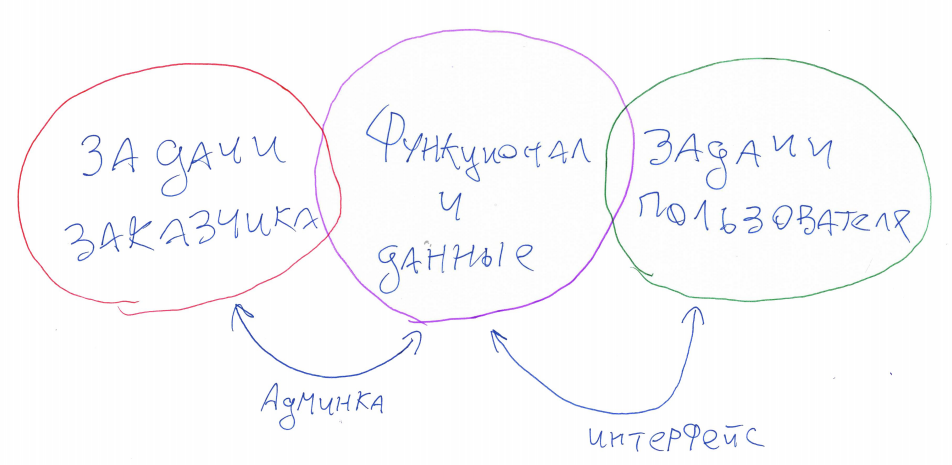 Задачи
заказчика
Функционал
и
данные
Задачи
пользователя
Админка
интерфейс